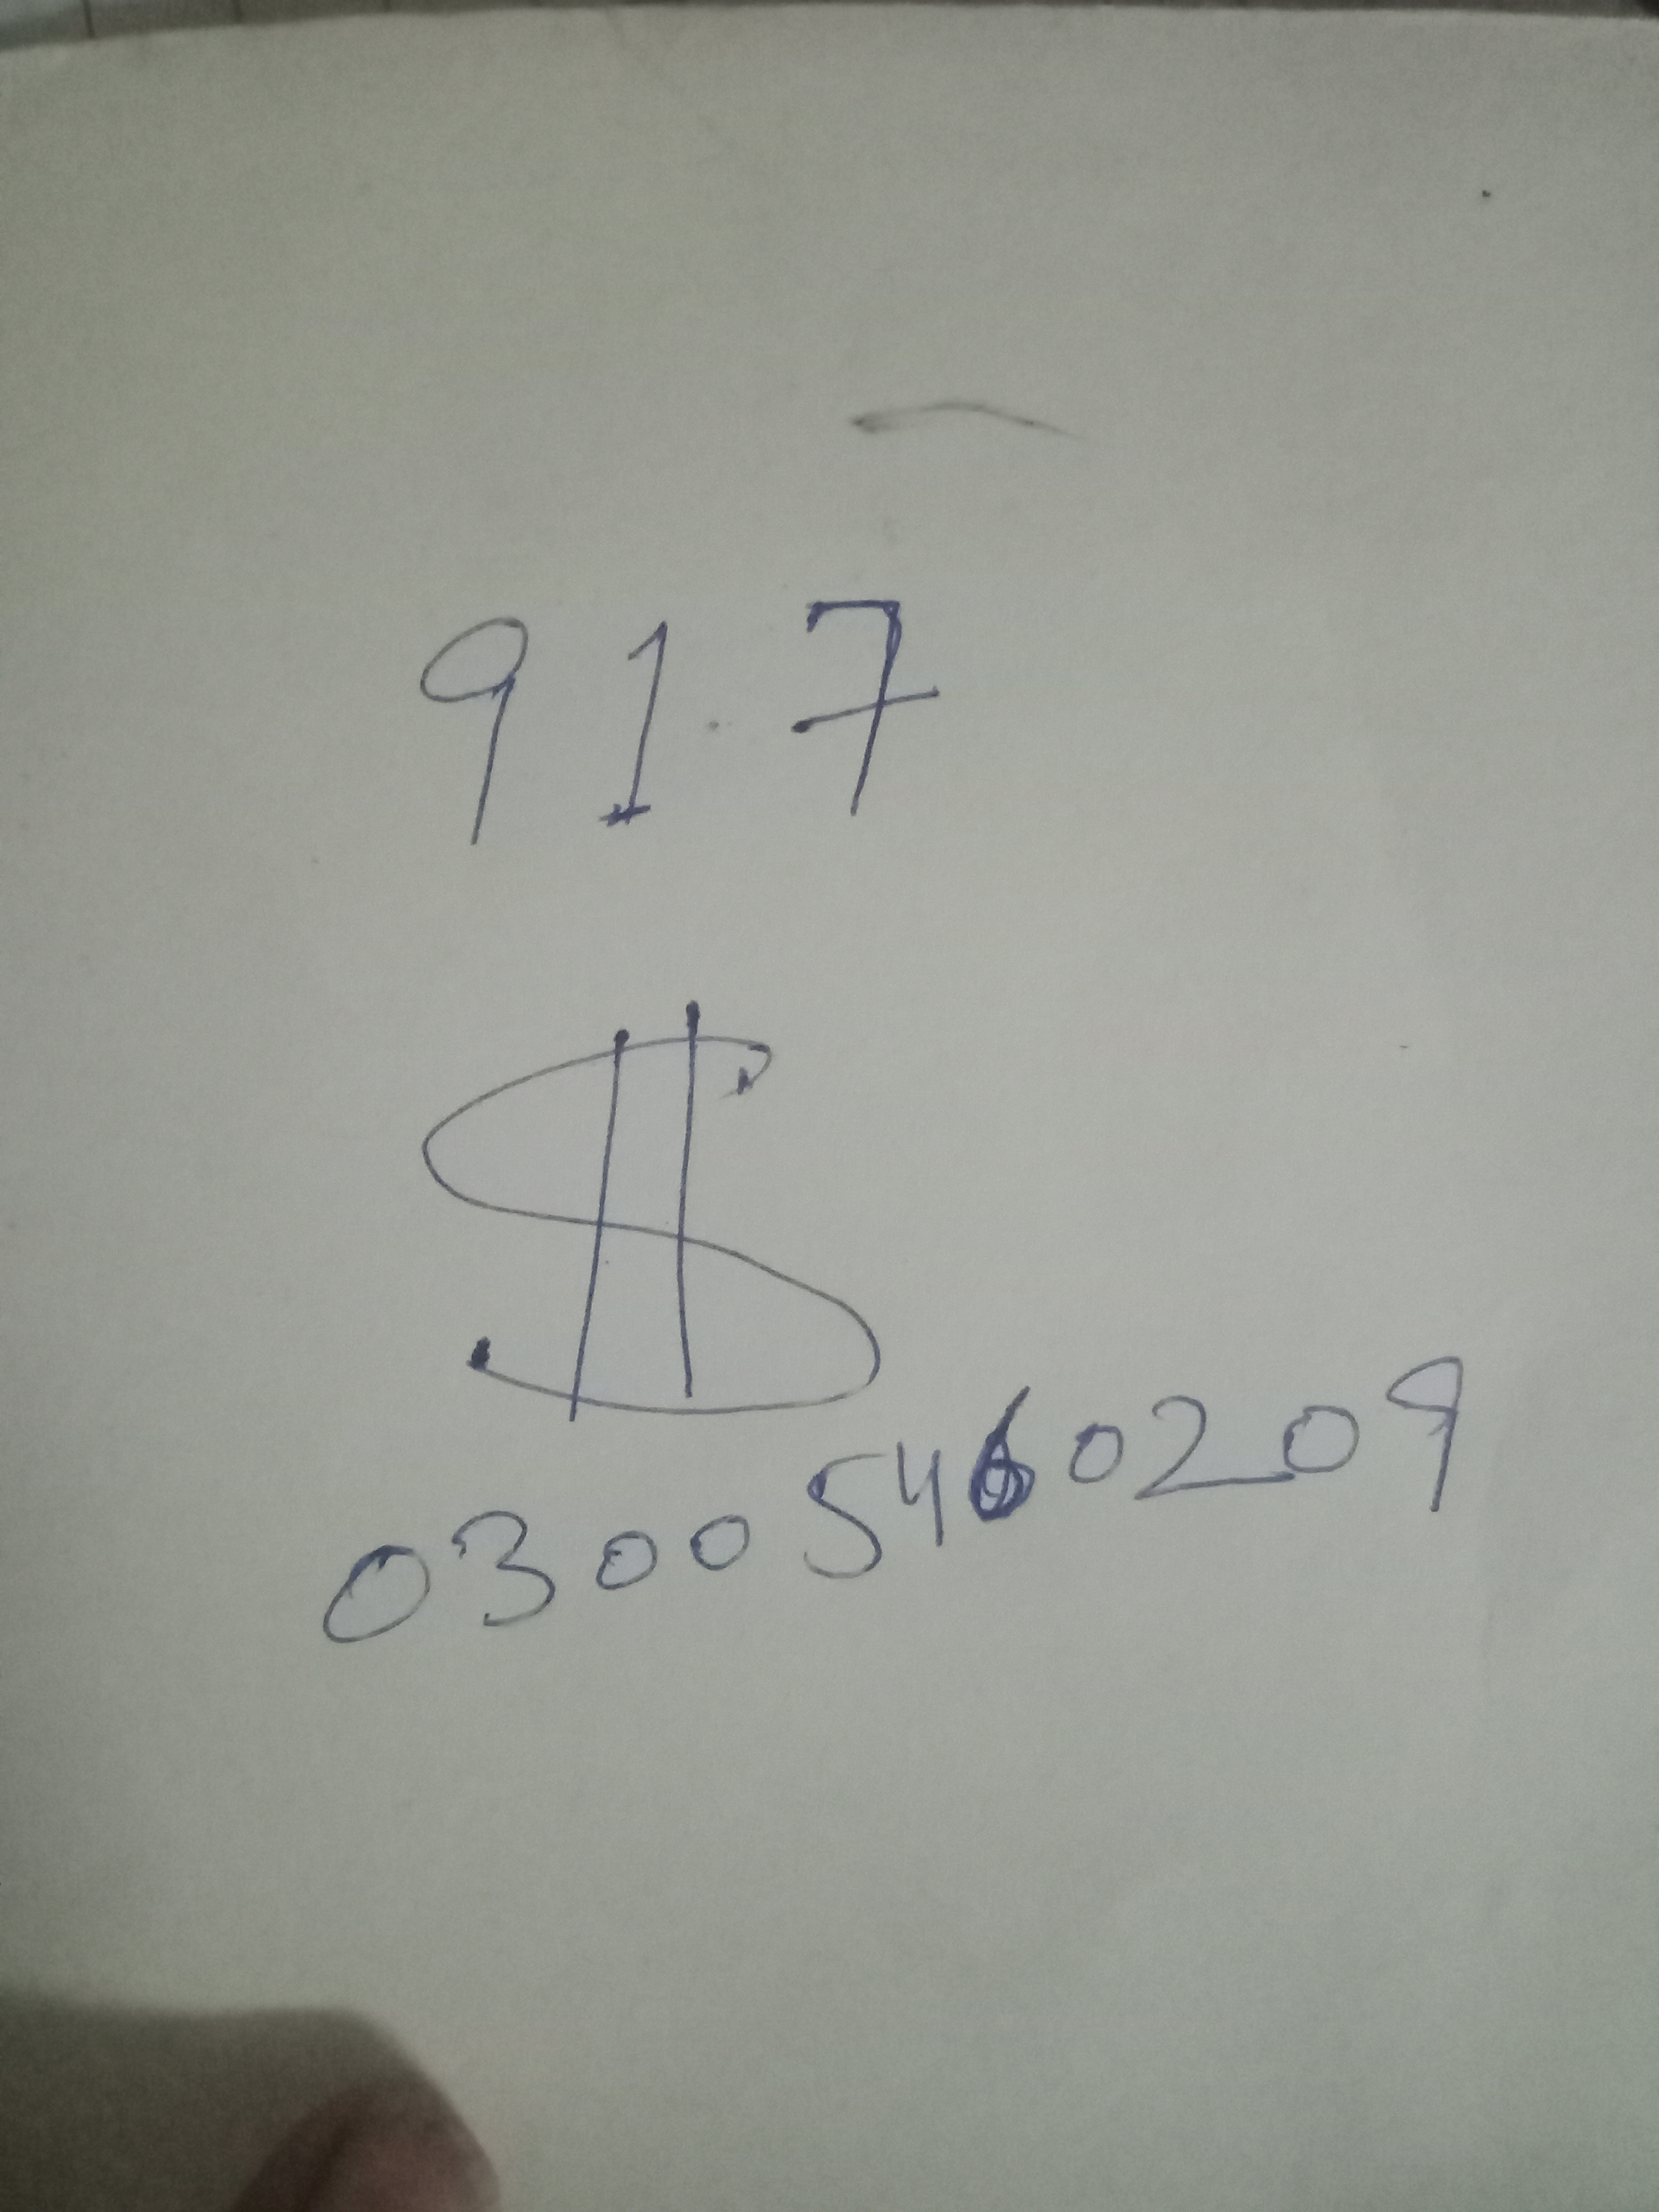 917
$
03005460209